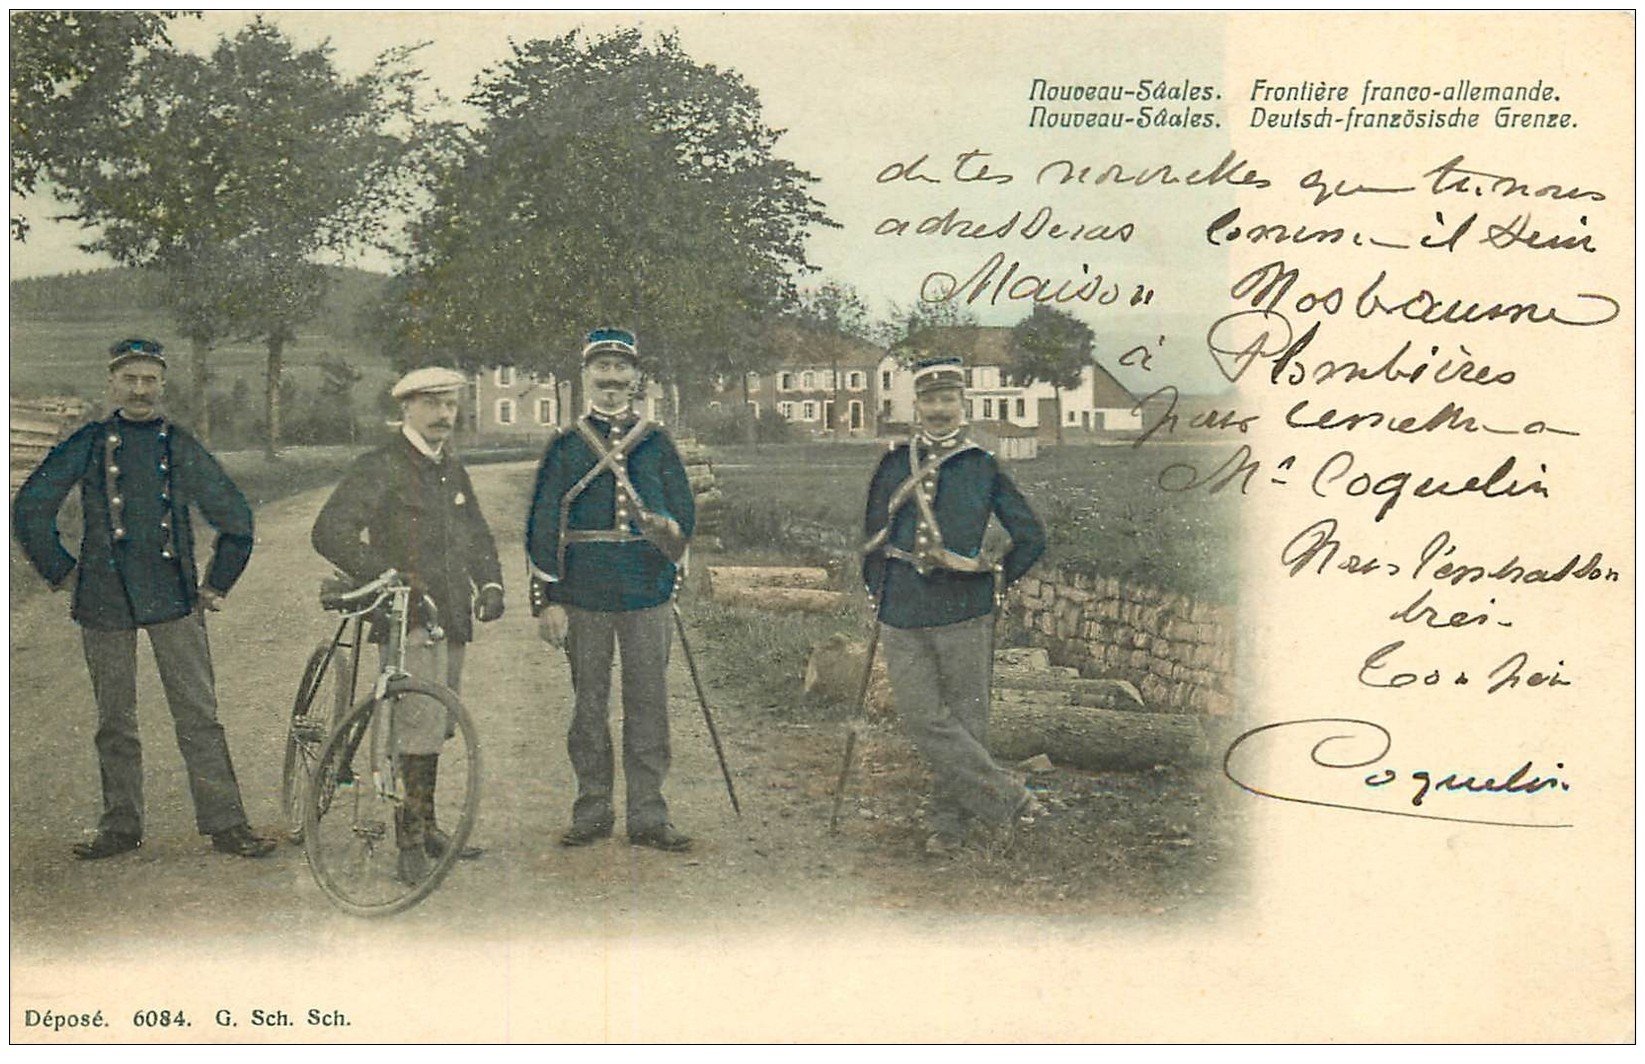 Nouveau-Sâales. Frontière franco-allemande.
Nouveau-Sâales. Deutsch-französische Grenze.
de tes nouvelles que tu nous
adresseras comme il suit
Maison Mosbaume
à Plombières
pour remettre a
Mr Coquelin
Nous t'embrassons
Ton
Coquelin
Déposé. 6084. G. Sch. Sch.